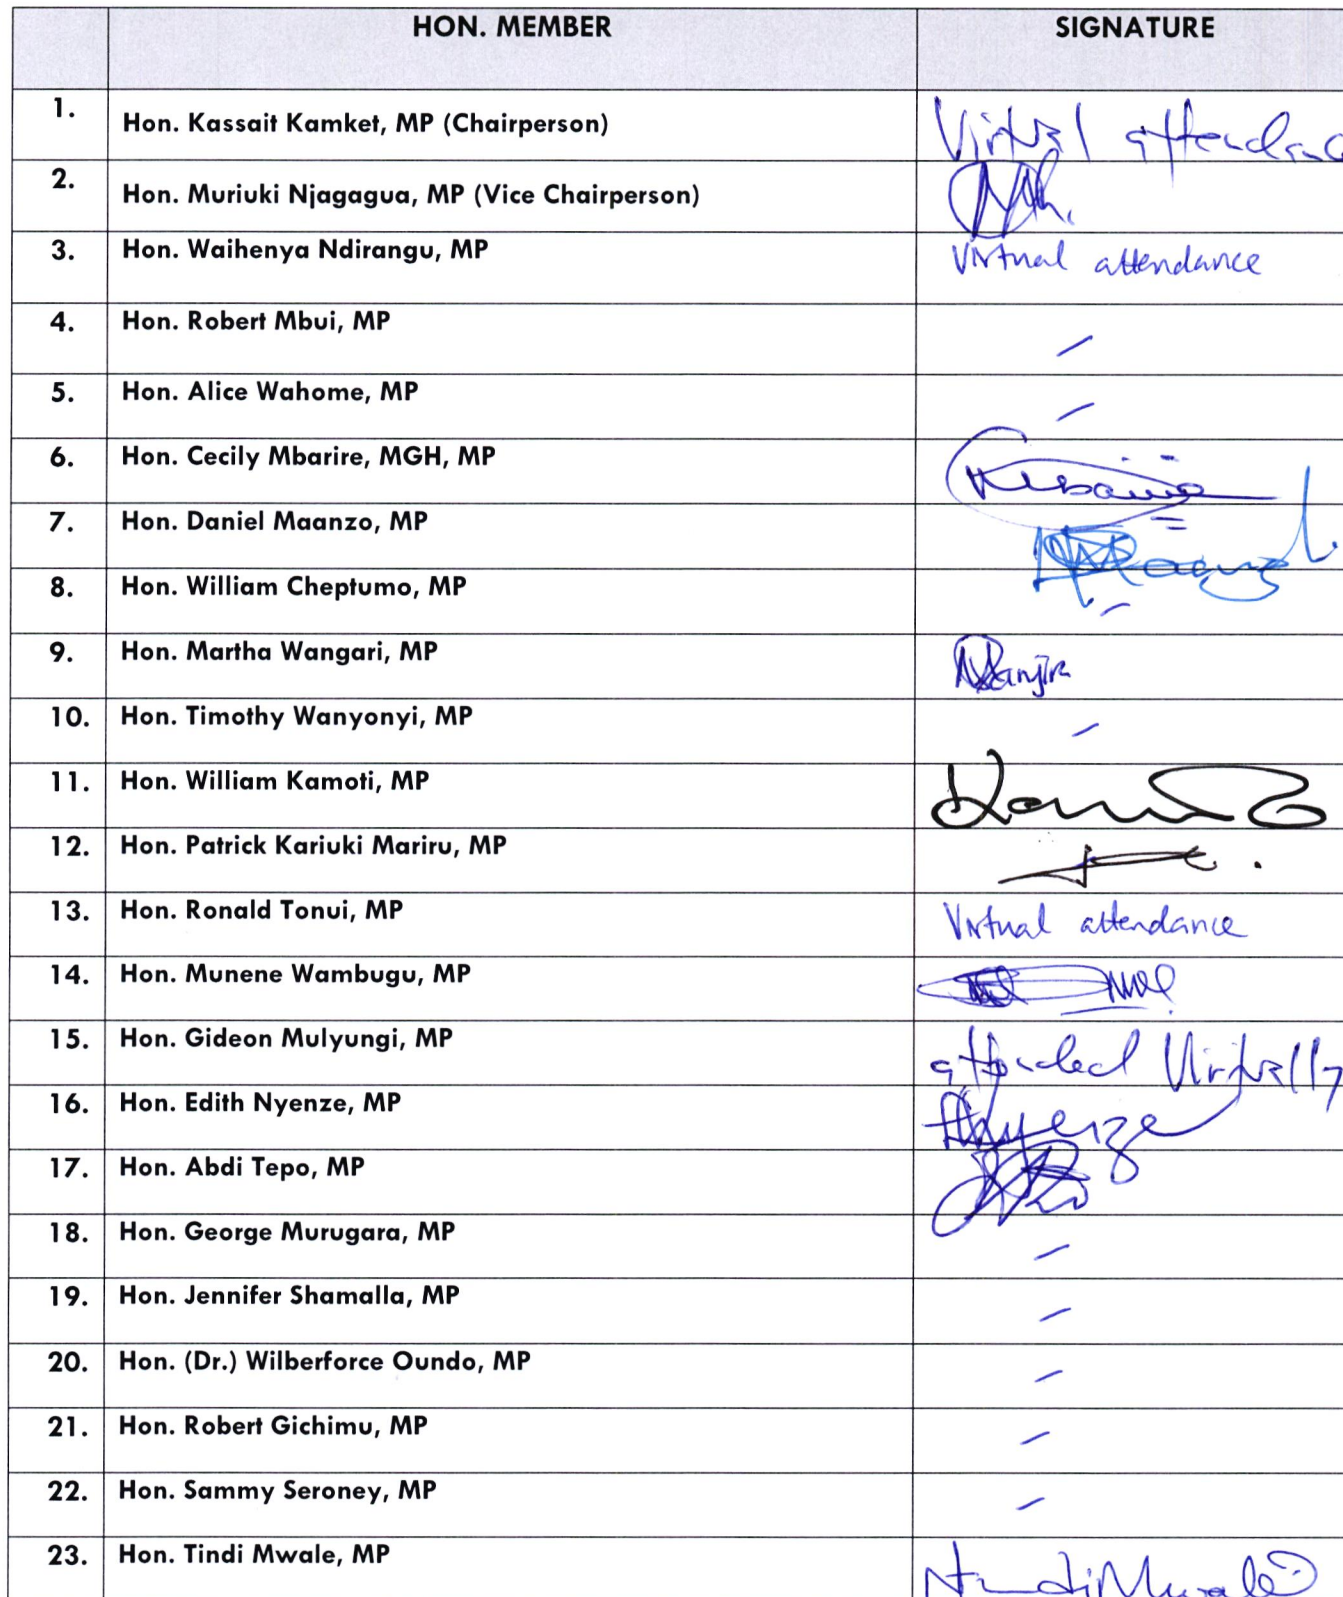 HON. MEMBER SIGNATURE
1. Hon. Kassait Kamket, MP (Chairperson) Virtual attendanc
2. Hon. Muriuki Njagagua, MP (Vice Chairperson)
3. Hon. Waihenya Ndirangu, MP Virtual attendance
4. Hon. Robert Mbui, MP
5. Hon. Alice Wahome, MP
6. Hon. Cecily Mbarire, MGH, MP
7. Hon. Daniel Maanzo, MP
8. Hon. William Cheptumo, MP
9. Hon. Martha Wangari, MP
10. Hon. Timothy Wanyonyi, MP
11. Hon. William Kamoti, MP
12. Hon. Patrick Kariuki Mariru, MP
13. Hon. Ronald Tonui, MP Virtual attendance
14. Hon. Munene Wambugu, MP
15. Hon. Gideon Mulyungi, MP attended Virtually
16. Hon. Edith Nyenze, MP
17. Hon. Abdi Tepo, MP
18. Hon. George Murugara, MP
19. Hon. Jennifer Shamalla, MP
20. Hon. (Dr.) Wilberforce Oundo, MP
21. Hon. Robert Gichimu, MP
22. Hon. Sammy Seroney, MP
23. Hon. Tindi Mwale, MP